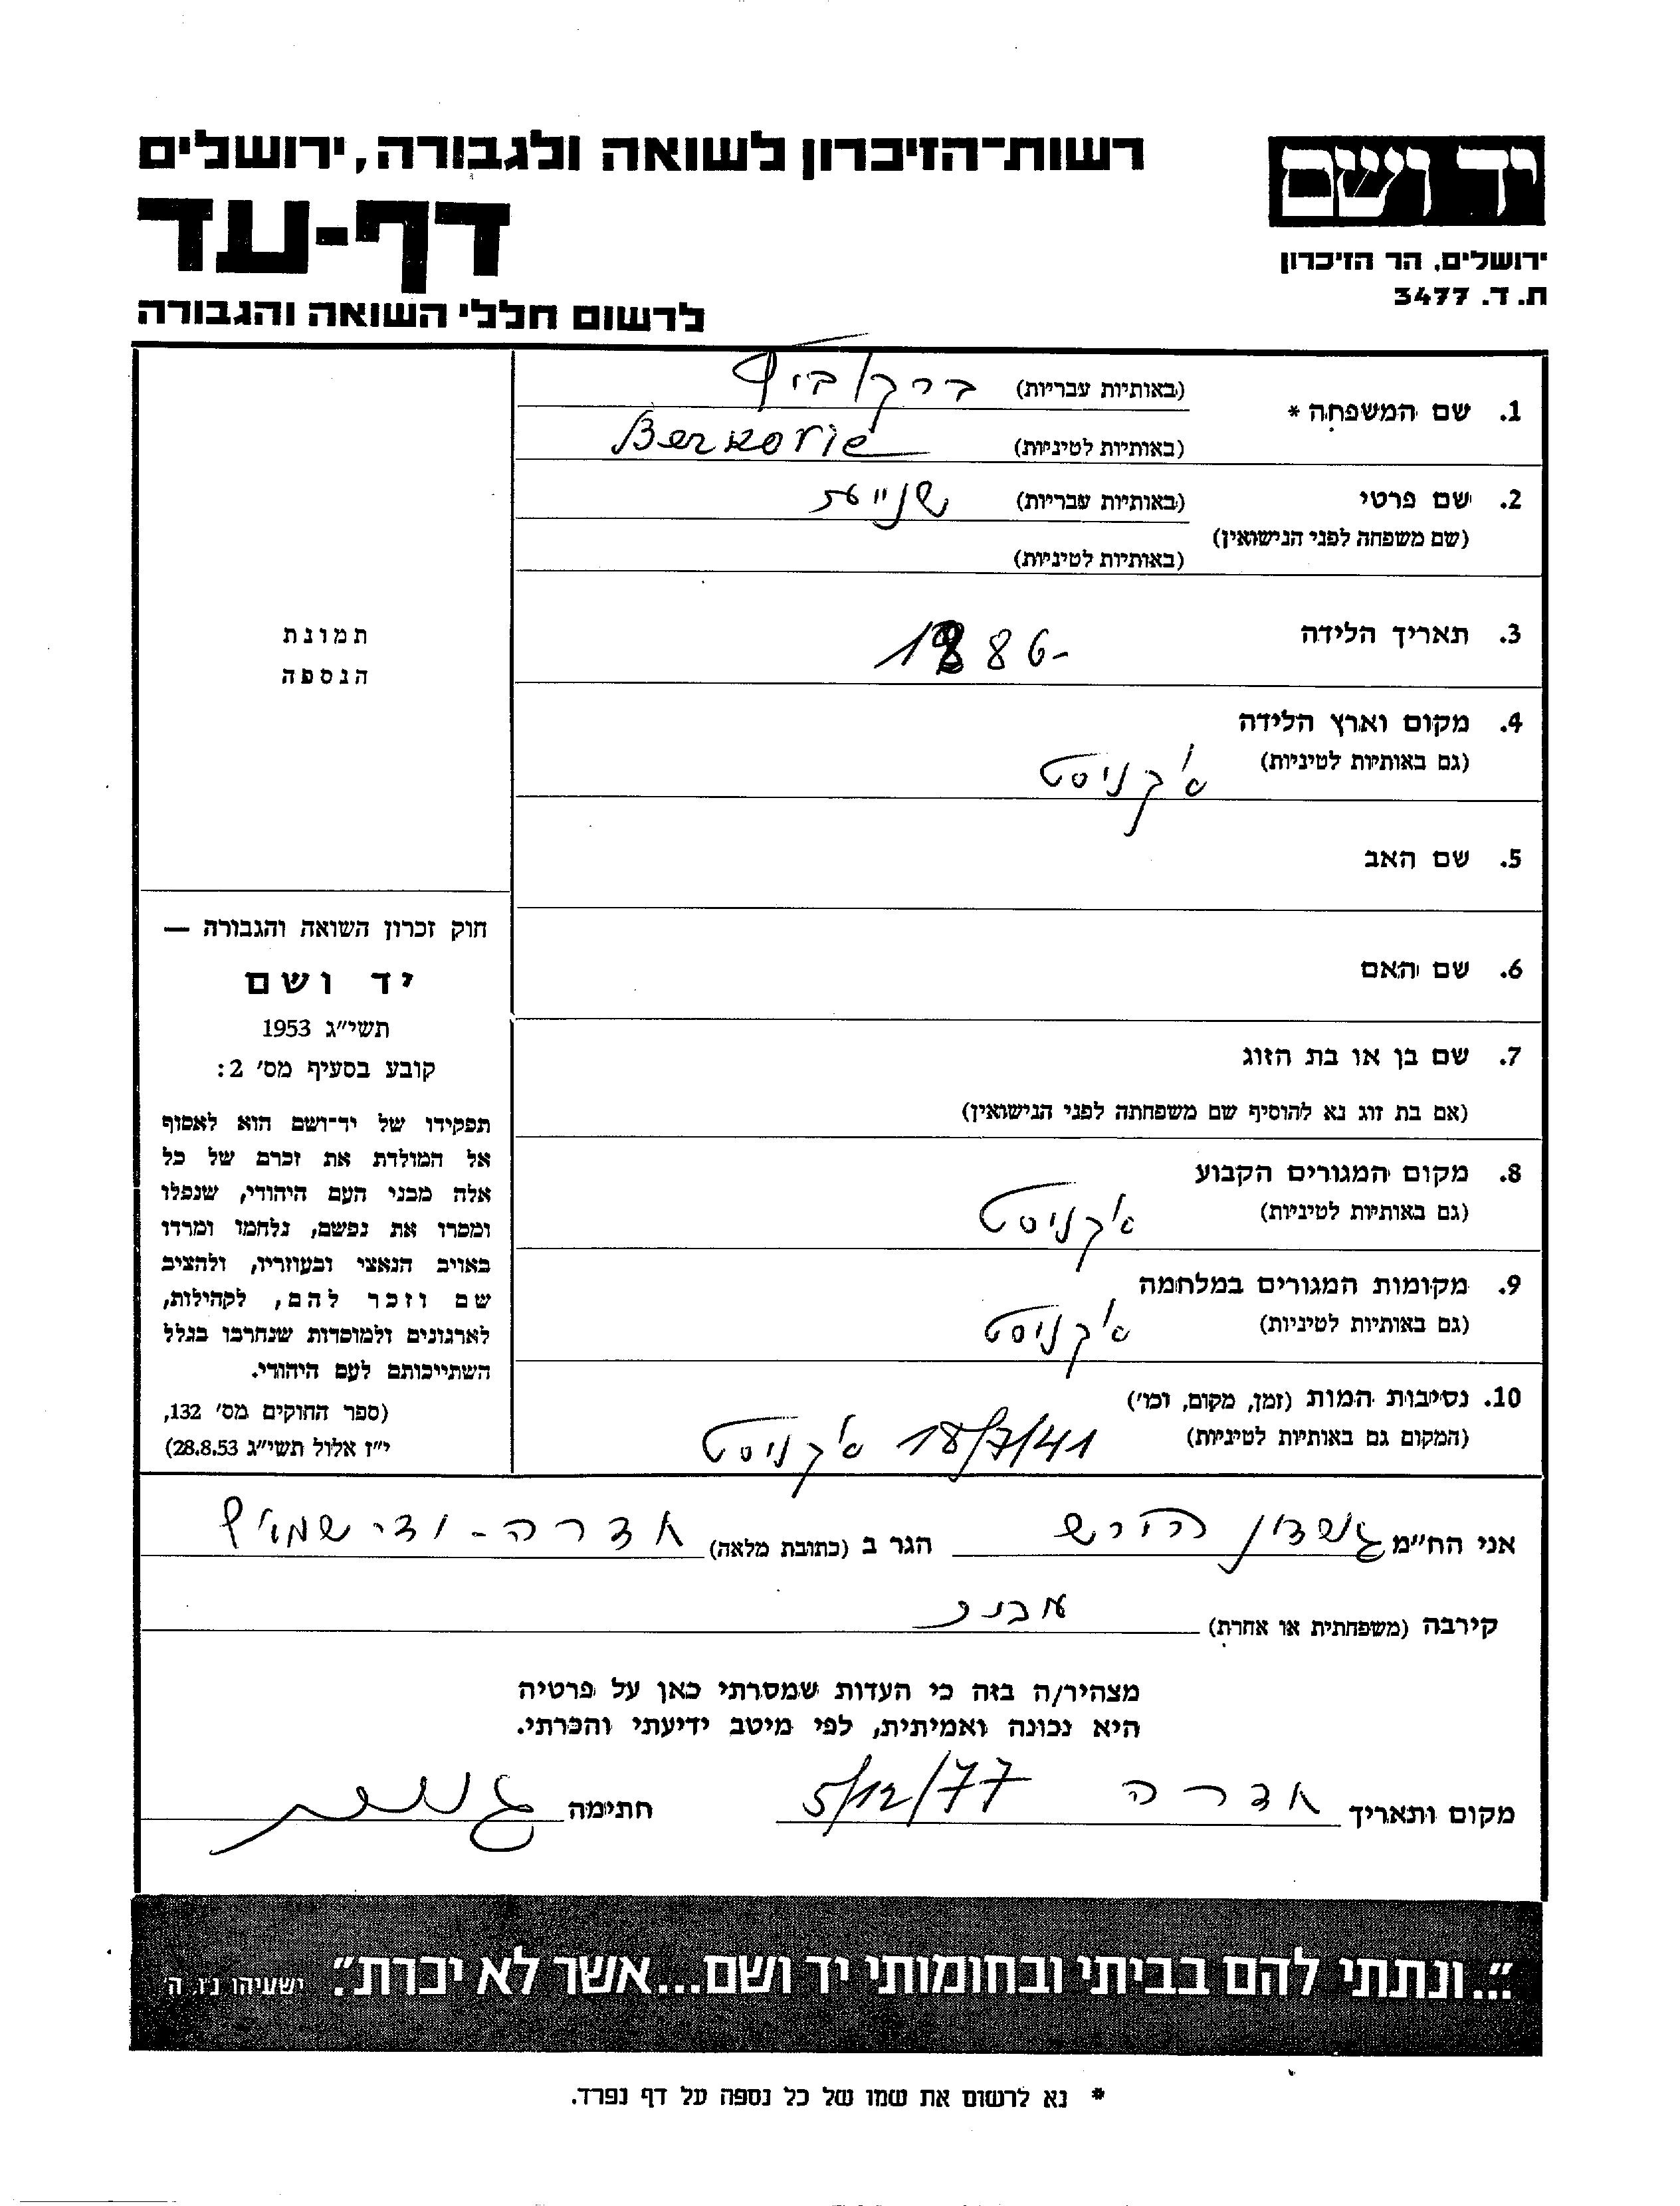 יד ושם
רשות־הזיכרון לשואה ולגבורה, ירושלים
דף-עד
לרשום חללי השואה והגבורה
ירושלים, הר הזיכרון
ת. ד. 3477
1. שם המשפחה *
(באותיות עבריות) ברקוביץ
(באותיות לטיניות) Berkovic
2. שם פרטי
(שם משפחה לפני הנישואין)
(באותיות עבריות)
(באותיות לטיניות)
3. תאריך הלידה 1886-
4. מקום וארץ הלידה
(גם באותיות לטיניות)
5. שם האב
6. שם האם
7. שם בן או בת הזוג
(אם בת זוג נא להוסיף שם משפחתה לפני הנישואין)
8. מקום המגורים הקבוע
(גם באותיות לטיניות)
9. מקומות המגורים במלחמה
(גם באותיות לטיניות)
10. נסיבות המות (זמן, מקום, וכו')
(המקום גם באותיות לטיניות) 18/7/41
תמונת
הנספה
חוק זכרון השואה והגבורה —
יד ושם
תשי״ג 1953
קובע בסעיף מס׳ 2:
תפקידו של יד־ושם הוא לאסוף
אל המולדת את זכרם של כל
אלה מבני העם היהודי, שנפלו
ומסרו את נפשם, נלחמו ומרדו
באויב הנאצי ובעוזריו, ולהציב
שם וזכר להם, לקהילות,
לארגונים ולמוסדות שנחרבו בגלל
השתייכותם לעם היהודי.
(ספר החוקים מס׳ 132,
י״ז אלול תשי״ג 28.8.53)
אני הח״מ הירש הגר ב (כתובת מלאה)
קירבה (משפחתית או אחרת)
מצהיר/ה בזה כי העדות שמסרתי כאן על פרטיה
היא נכונה ואמיתית, לפי מיטב ידיעתי והכרתי.
מקום ותאריך 5/12/77 חתימה
"...ונתתי להם בביתי ובחומותי יד ושם...אשר לא יכרת". ישעיהו נו, ה'
* נא לרשום את שמו של כל נספה על דף נפרד.